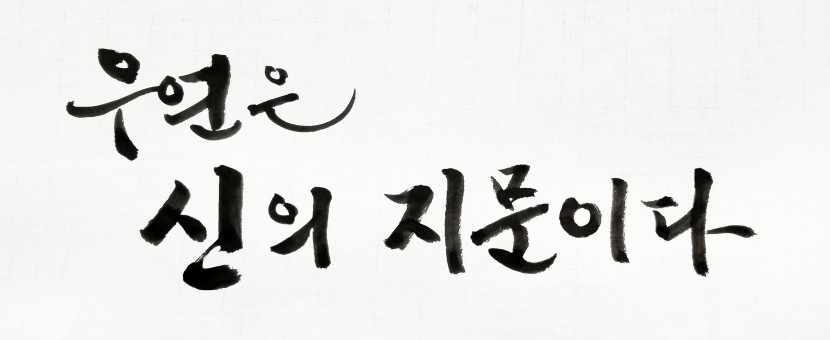 우연은
신의 지문이다